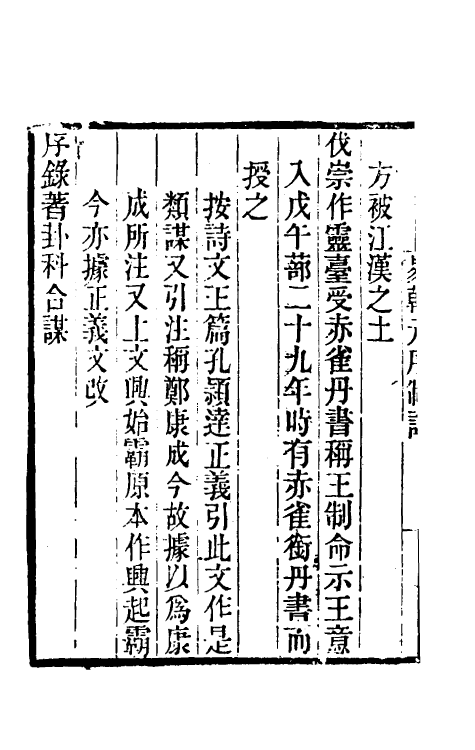 方被江漢之土
伐崇作靈臺受赤雀丹書稱王制命示王意
入戊午蔀二十九年時有赤雀銜丹書而
授之
按詩文王篇孔穎達正義引此文作是
類謀又引注稱鄭康成今故據以爲康
成所注又上文興始霸原本作興起霸
今亦據正義文改
序錄著卦科合謀